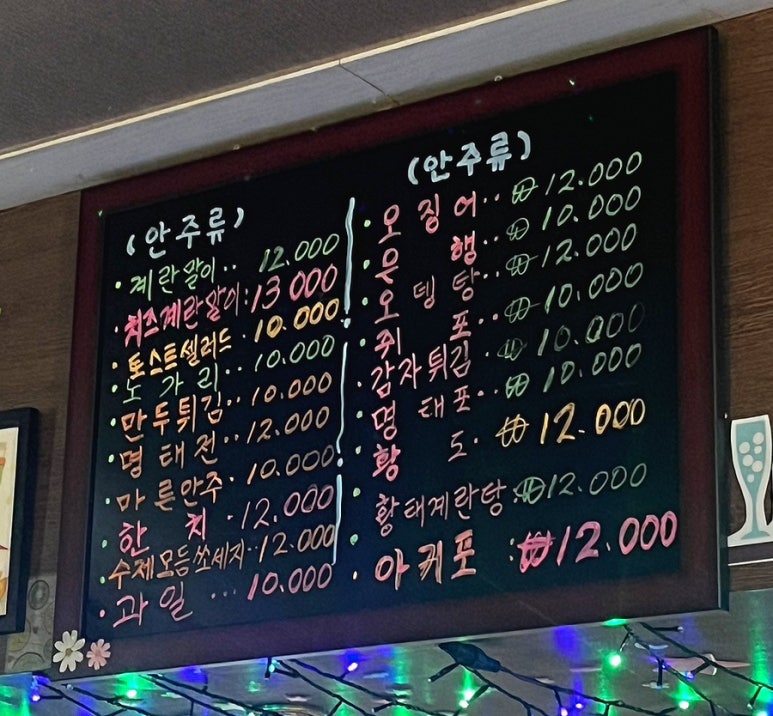 (안주류)
·계란말이·· 12.000
·치즈계란말이:13.000
·토스트셀러드·10.000
·노가리·· 10.000
·만두튀김·· 10.000
·명태전·· 12.000
·마른안주·10.000
·한치·12.000
·수제모듬쏘세지··12.000
·과일··· 10.000
(안주류)
·오징어·· ₩12.000
·은행·· ₩10.000
·오뎅탕·· ₩12.000
·쥐포·· ₩10.000
·감자튀김·₩10.000
·명태포·· ₩10.000
·황도· ₩12.000
·황태계란탕:₩12.000
·아귀포:₩12.000